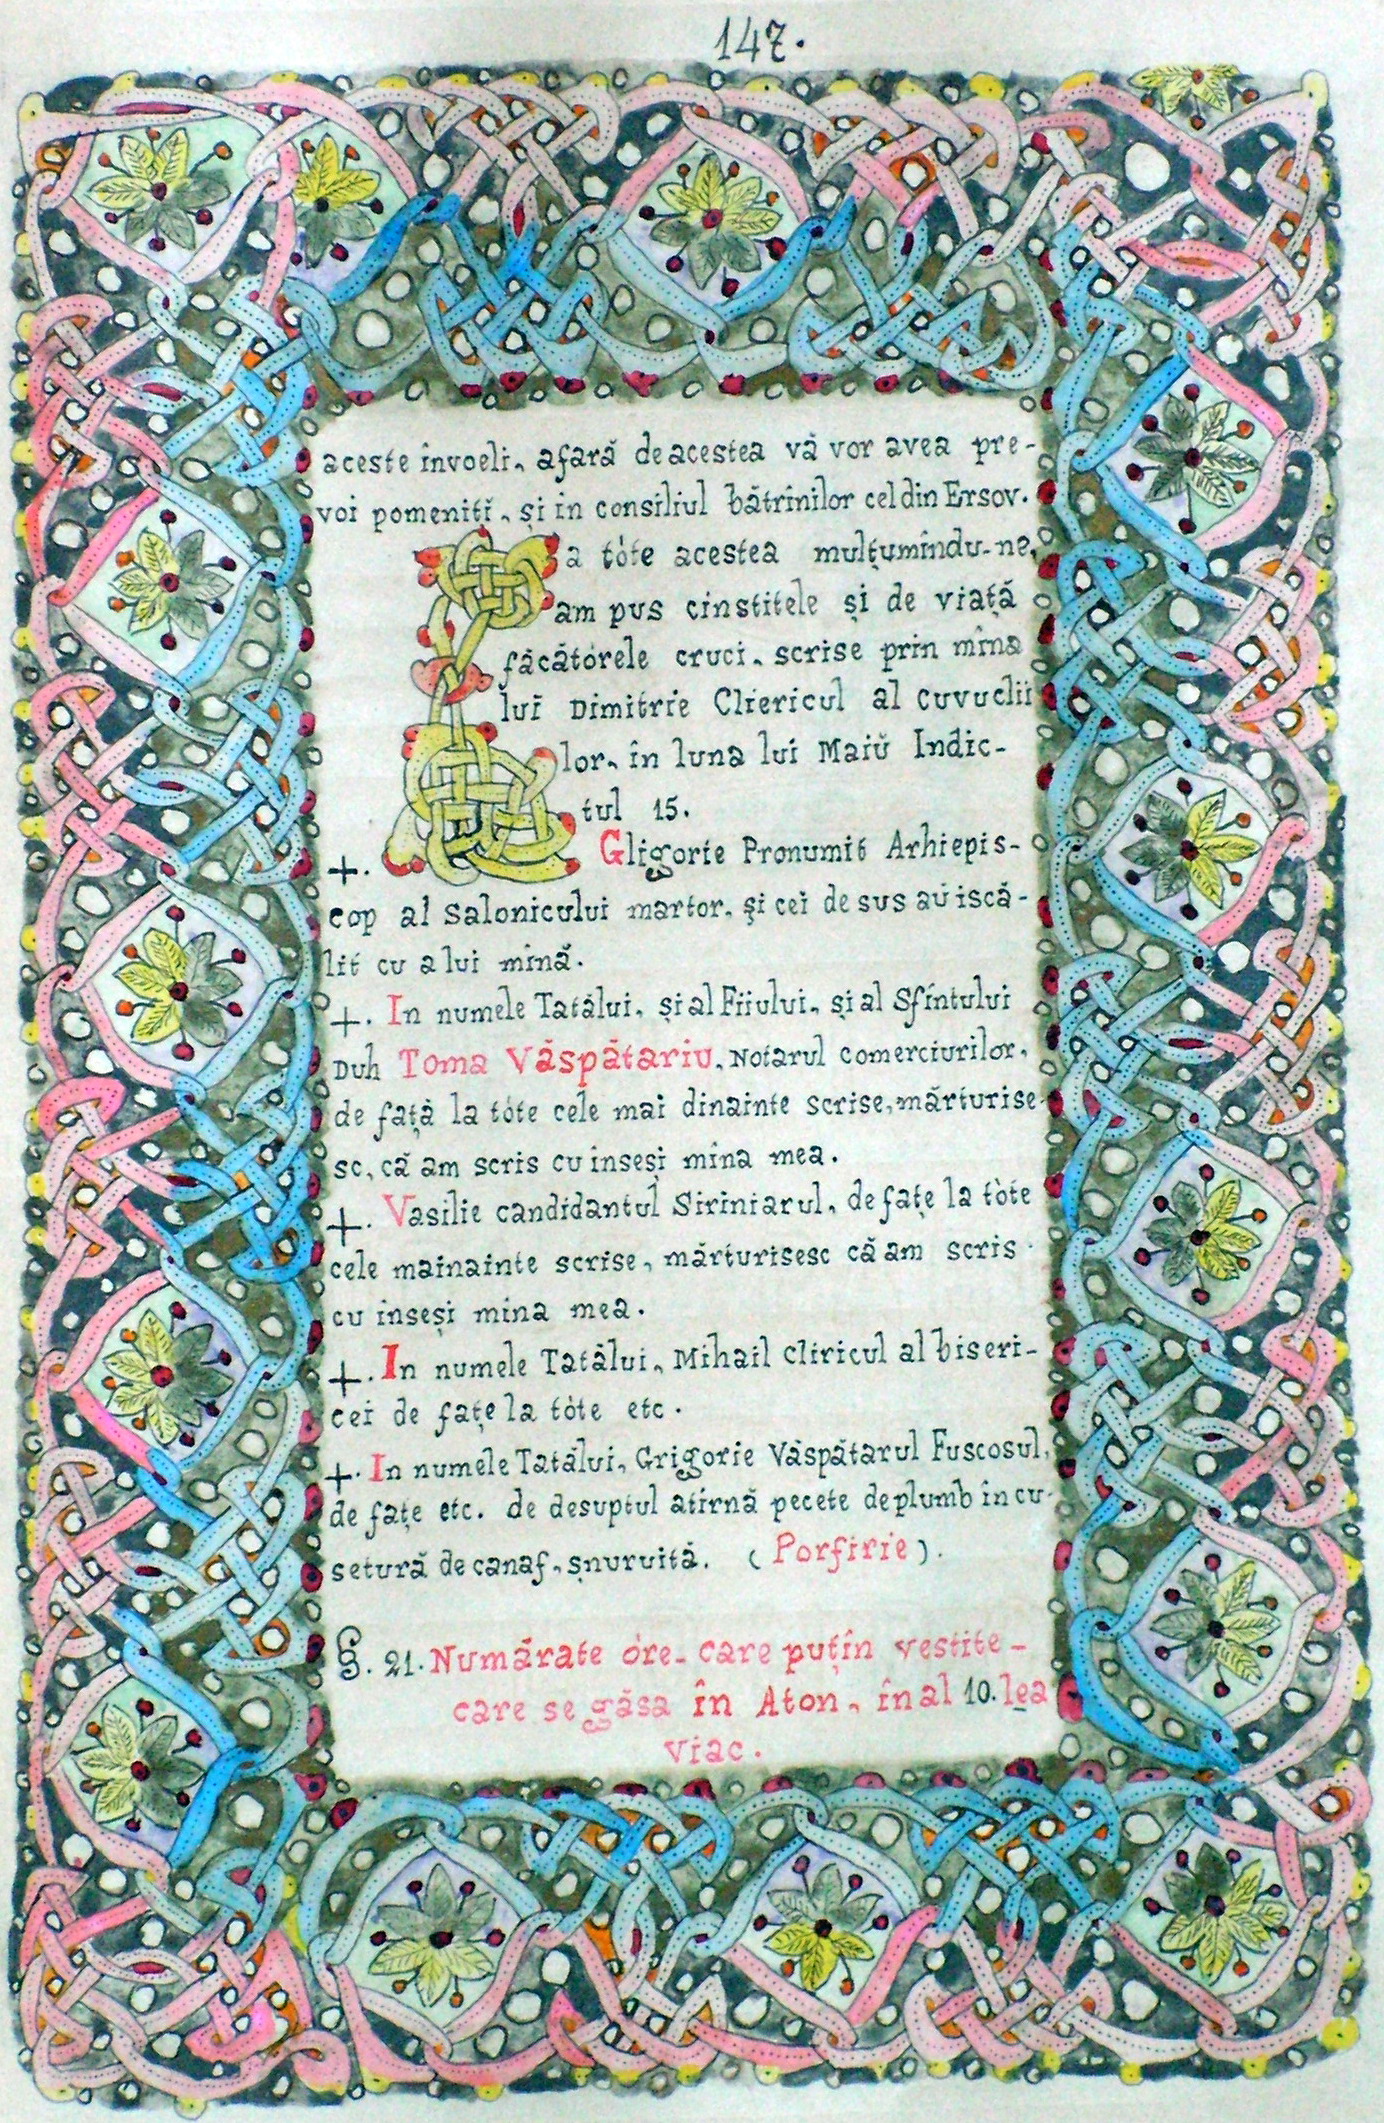 147.
aceste învoelĭ, afară de acestea vă vor avea pre-
voi pomenitĭ, și in consiliul bătrînilor cel din Ersov.
La tóte acestea mulțumîndu-ne,
am pus cinstitele și de viață
făcătórele crucĭ, scrise prin mîna
luĭ Dimitrie Cliericul al cuvuclii
lor, în luna lui Maiŭ Indic-
tul 15.
+. Gligorie Pronumit Arhiepis-
cop al Salonicului martor, și cei de sus aŭ iscă-
lit cu a lui mînă.
+. In numele Tatălui, și al Fiiului, și al Sfîntului
Duh Toma Văspătariu, Notarul comerciurilor,
de față la tóte cele mai dinainte scrise, mărturise-
sc, că am scris cu inseși mîna mea.
+. Vasilie candidantul Siriniarul, de fațe la tóte
cele mainainte scrise, mărturisesc că am scris
cu inseși mina mea.
+. In numele Tatălui, Mihail cliricul al biseri-
cei de fațe la tóte etc.
+. In numele Tatălui, Grigorie Văspătarul Fuscosul,
de fațe etc. de desuptul atîrnă pecete de plumb în cu-
setură de canaf, șnuruită. (Porfirie).
§. 21. Numărate óre-care puțîn vestite-
care se găsa în Aton, în al 10. lea
viac.